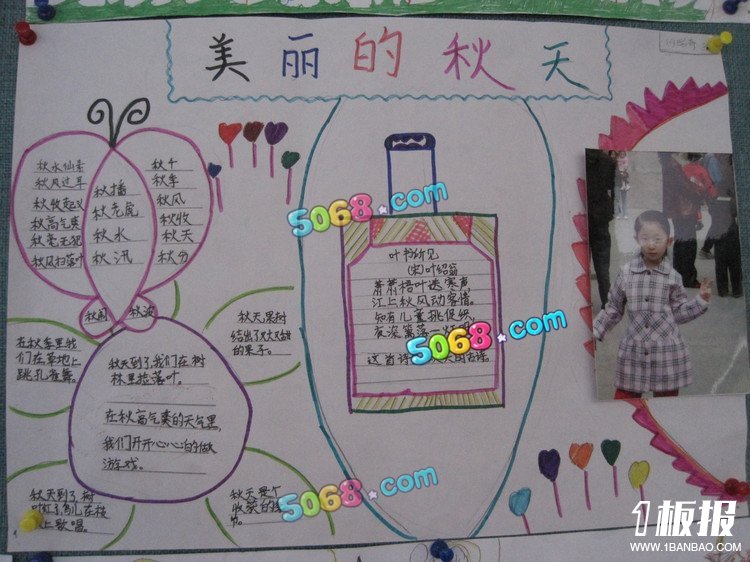 美丽的秋天
秋水仙素
秋风过耳
秋收起义
秋高气爽
秋毫无犯
秋风扫落叶
秋播
秋老虎
秋水
秋汛
秋千
秋季
秋风
秋收
秋天
秋分
秋波
在秋季里我
们在草地上
跳孔雀舞。
秋天到了,我们在树
林里捡落叶。
在秋高气爽的天气里,
我们开开心心的做
游戏。
秋天,果树
结出了又大又甜
的果子。
秋天到了,树
秋天是个
叶书所见
(宋)叶绍翁
萧萧梧叶送寒声,
江上秋风动客情。
知有儿童挑促织,
夜深篱落一
这首诗
5068.com
5068.com
5068.com
1板报
WWW.1BANBAO.COM